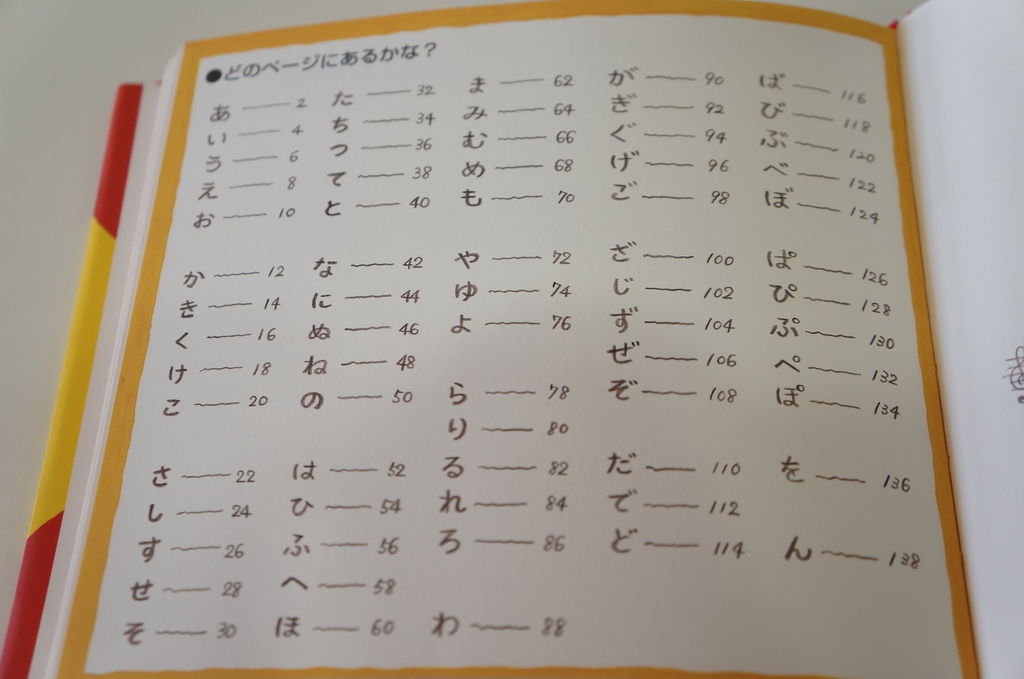 ●どのページにあるかな？
あ 2
い 4
う 6
え 8
お 10
か 12
き 14
く 16
け 18
こ 20
さ 22
し 24
す 26
せ 28
そ 30
た 32
ち 34
つ 36
て 38
と 40
な 42
に 44
ぬ 46
ね 48
の 50
は 52
ひ 54
ふ 56
へ 58
ほ 60
ま 62
み 64
む 66
め 68
も 70
や 72
ゆ 74
よ 76
ら 78
り 80
る 82
れ 84
ろ 86
わ 88
が 90
ぎ 92
ぐ 94
げ 96
ご 98
ざ 100
じ 102
ず 104
ぜ 106
ぞ 108
だ 110
で 112
ど 114
ば 116
び 118
ぶ 120
べ 122
ぼ 124
ぱ 126
ぴ 128
ぷ 130
ぺ 132
ぽ 134
を 136
ん 138